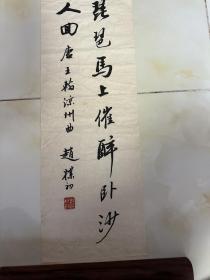 琵琶馬上催醉卧沙
人回 唐王翰涼州曲 趙樸初